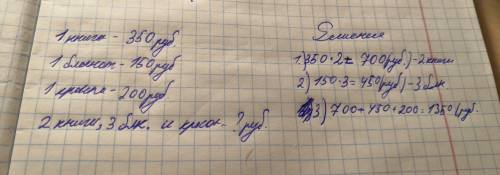 1 книга - 350 руб
1 блокнот - 150 руб
1 - 200 руб
2 книги, 3 блк. и - ? руб.
Решение
1) 350 · 2 = 700 (руб.) - 2 книги
2) 150 · 3 = 450 (руб) - 3 блк.
3) 700 + 450 + 200 = 1350 (руб.